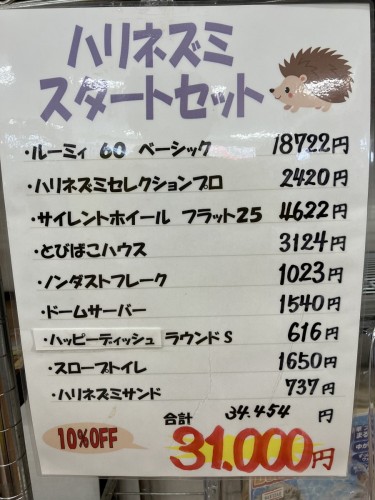 ハリネズミ
スタートセット
・ルーミィ 60 ベーシック 18722円
・ハリネズミセレクションプロ 2420円
・サイレントホイール フラット25 4622円
・とびばこハウス 3124円
・ノンダストフレーク 1023円
・ドームサーバー 1540円
・ハッピーディッシュ ラウンドS 616円
・スロープトイレ 1650円
・ハリネズミサンド 737円
合計 34.454 円
10%OFF 31.000円